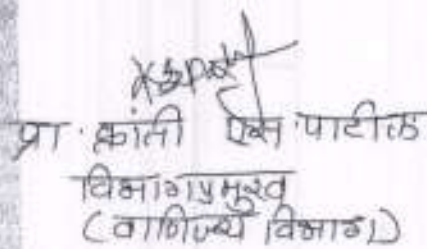 प्रा. क्रांती एस पाटील
विभागप्रमुख
(वाणिज्य विभाग)